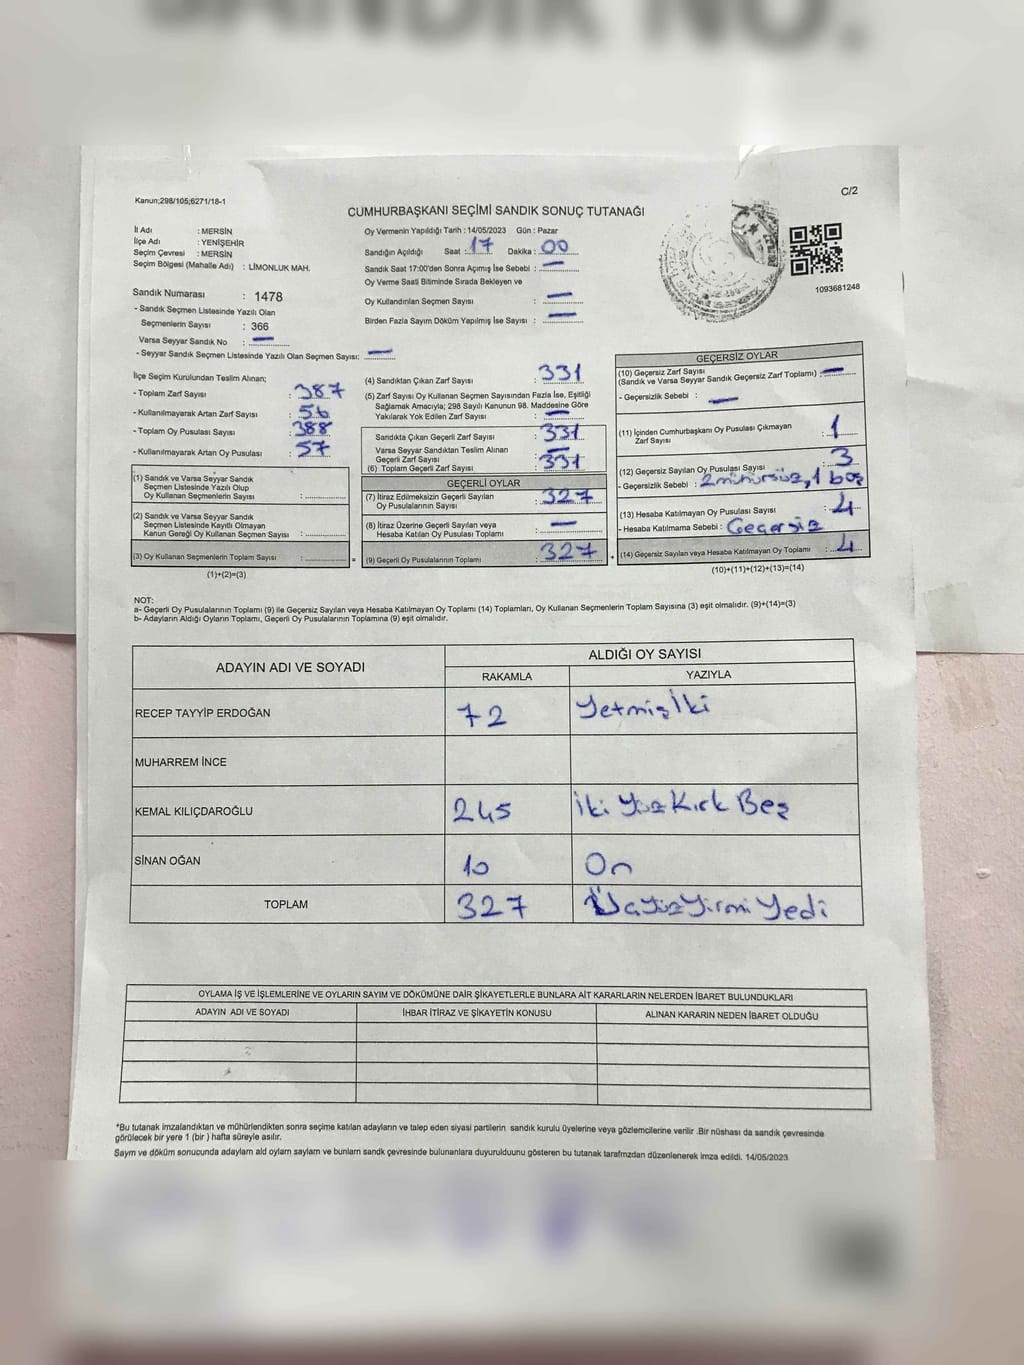 SANDIK NO.
Kanun;298/105;6271/18-1
C/2
CUMHURBAŞKANI SEÇİMİ SANDIK SONUÇ TUTANAĞI
İl Adı : MERSİN
İlçe Adı : YENİŞEHİR
Seçim Çevresi : MERSİN
Seçim Bölgesi (Mahalle Adı) : LİMONLUK MAH.
Sandık Numarası : 1478
- Sandık Seçmen Listesinde Yazılı Olan
Seçmenlerin Sayısı : 366
Varsa Seyyar Sandık No : —
- Seyyar Sandık Seçmen Listesinde Yazılı Olan Seçmen Sayısı: —
Oy Vermenin Yapıldığı Tarih : 14/05/2023 Gün : Pazar
Sandığın Açıldığı Saat : 17 Dakika : 00
Sandık Saat 17:00'den Sonra Açımış İse Sebebi : —
Oy Verme Saati Bitiminde Sırada Bekleyen ve
Oy Kullandırılan Seçmen Sayısı : —
Birden Fazla Sayım Döküm Yapılmış İse Sayısı : —
1093681248
İlçe Seçim Kurulundan Teslim Alınan;
- Toplam Zarf Sayısı : 387
- Kullanılmayarak Artan Zarf Sayısı : 56
- Toplam Oy Pusulası Sayısı : 388
- Kullanılmayarak Artan Oy Pusulası : 57
(1) Sandık ve Varsa Seyyar Sandık
Seçmen Listesinde Yazılı Olup
Oy Kullanan Seçmenlerin Sayısı :
(2) Sandık ve Varsa Seyyar Sandık
Seçmen Listesinde Kayıtlı Olmayan
Kanun Gereği Oy Kullanan Seçmen Sayısı :
(3) Oy Kullanan Seçmenlerin Toplam Sayısı :
(1)+(2)=(3)
(4) Sandıktan Çıkan Zarf Sayısı : 331
(5) Zarf Sayısı Oy Kullanan Seçmen Sayısından Fazla İse, Eşitliği
Sağlamak Amacıyla; 298 Sayılı Kanunun 98. Maddesine Göre
Yakılarak Yok Edilen Zarf Sayısı : —
Sandıkta Çıkan Geçerli Zarf Sayısı : 331
Varsa Seyyar Sandıktan Teslim Alınan
Geçerli Zarf Sayısı : —
(6) Toplam Geçerli Zarf Sayısı : 331
GEÇERLİ OYLAR
(7) İtiraz Edilmeksizin Geçerli Sayılan
Oy Pusulalarının Sayısı : 327
(8) İtiraz Üzerine Geçerli Sayılan veya
Hesaba Katılan Oy Pusulası Toplamı : —
(9) Geçerli Oy Pusulalarının Toplamı : 327
GEÇERSİZ OYLAR
(10) Geçersiz Zarf Sayısı
(Sandık ve Varsa Seyyar Sandık Geçersiz Zarf Toplamı) : —
- Geçersizlik Sebebi : —
(11) İçinden Cumhurbaşkanı Oy Pusulası Çıkmayan
Zarf Sayısı : 1
(12) Geçersiz Sayılan Oy Pusulası Sayısı : 3
- Geçersizlik Sebebi : 2 mühürsüz, 1 boş
(13) Hesaba Katılmayan Oy Pusulası Sayısı : 4
- Hesaba Katılmama Sebebi : Geçersiz
(14) Geçersiz Sayılan veya Hesaba Katılmayan Oy Toplamı : 4
(10)+(11)+(12)+(13)=(14)
NOT:
a- Geçerli Oy Pusulalarının Toplamı (9) ile Geçersiz Sayılan veya Hesaba Katılmayan Oy Toplamı (14) Toplamları, Oy Kullanan Seçmenlerin Toplam Sayısına (3) eşit olmalıdır. (9)+(14)=(3)
b- Adayların Aldığı Oyların Toplamı, Geçerli Oy Pusulalarının Toplamına (9) eşit olmalıdır.
ADAYIN ADI VE SOYADI ALDIĞI OY SAYISI
RAKAMLA YAZIYLA
RECEP TAYYİP ERDOĞAN 72 Yetmiş İki
MUHARREM İNCE
KEMAL KILIÇDAROĞLU 245 İki Yüz Kırk Beş
SİNAN OĞAN 10 On
TOPLAM 327 Üçyüz Yirmi Yedi
OYLAMA İŞ VE İŞLEMLERİNE VE OYLARIN SAYIM VE DÖKÜMÜNE DAİR ŞİKAYETLERLE BUNLARA AİT KARARLARIN NELERDEN İBARET BULUNDUKLARI
ADAYIN ADI VE SOYADI İHBAR İTİRAZ VE ŞİKAYETİN KONUSU ALINAN KARARIN NEDEN İBARET OLDUĞU
*Bu tutanak imzalandıktan ve mühürlendikten sonra seçime katılan adayların ve talep eden siyasi partilerin sandık kurulu üyelerine veya gözlemcilerine verilir .Bir nüshası da sandık çevresinde
görülecek bir yere 1 (bir ) hafta süreyle asılır.
Sayım ve döküm sonucunda adayların aldı oyların sayları ve bunların sandk çevresinde bulunanlara duyurulduunu gösteren bu tutanak tarafmzdan düzenlenerek imza edildi. 14/05/2023